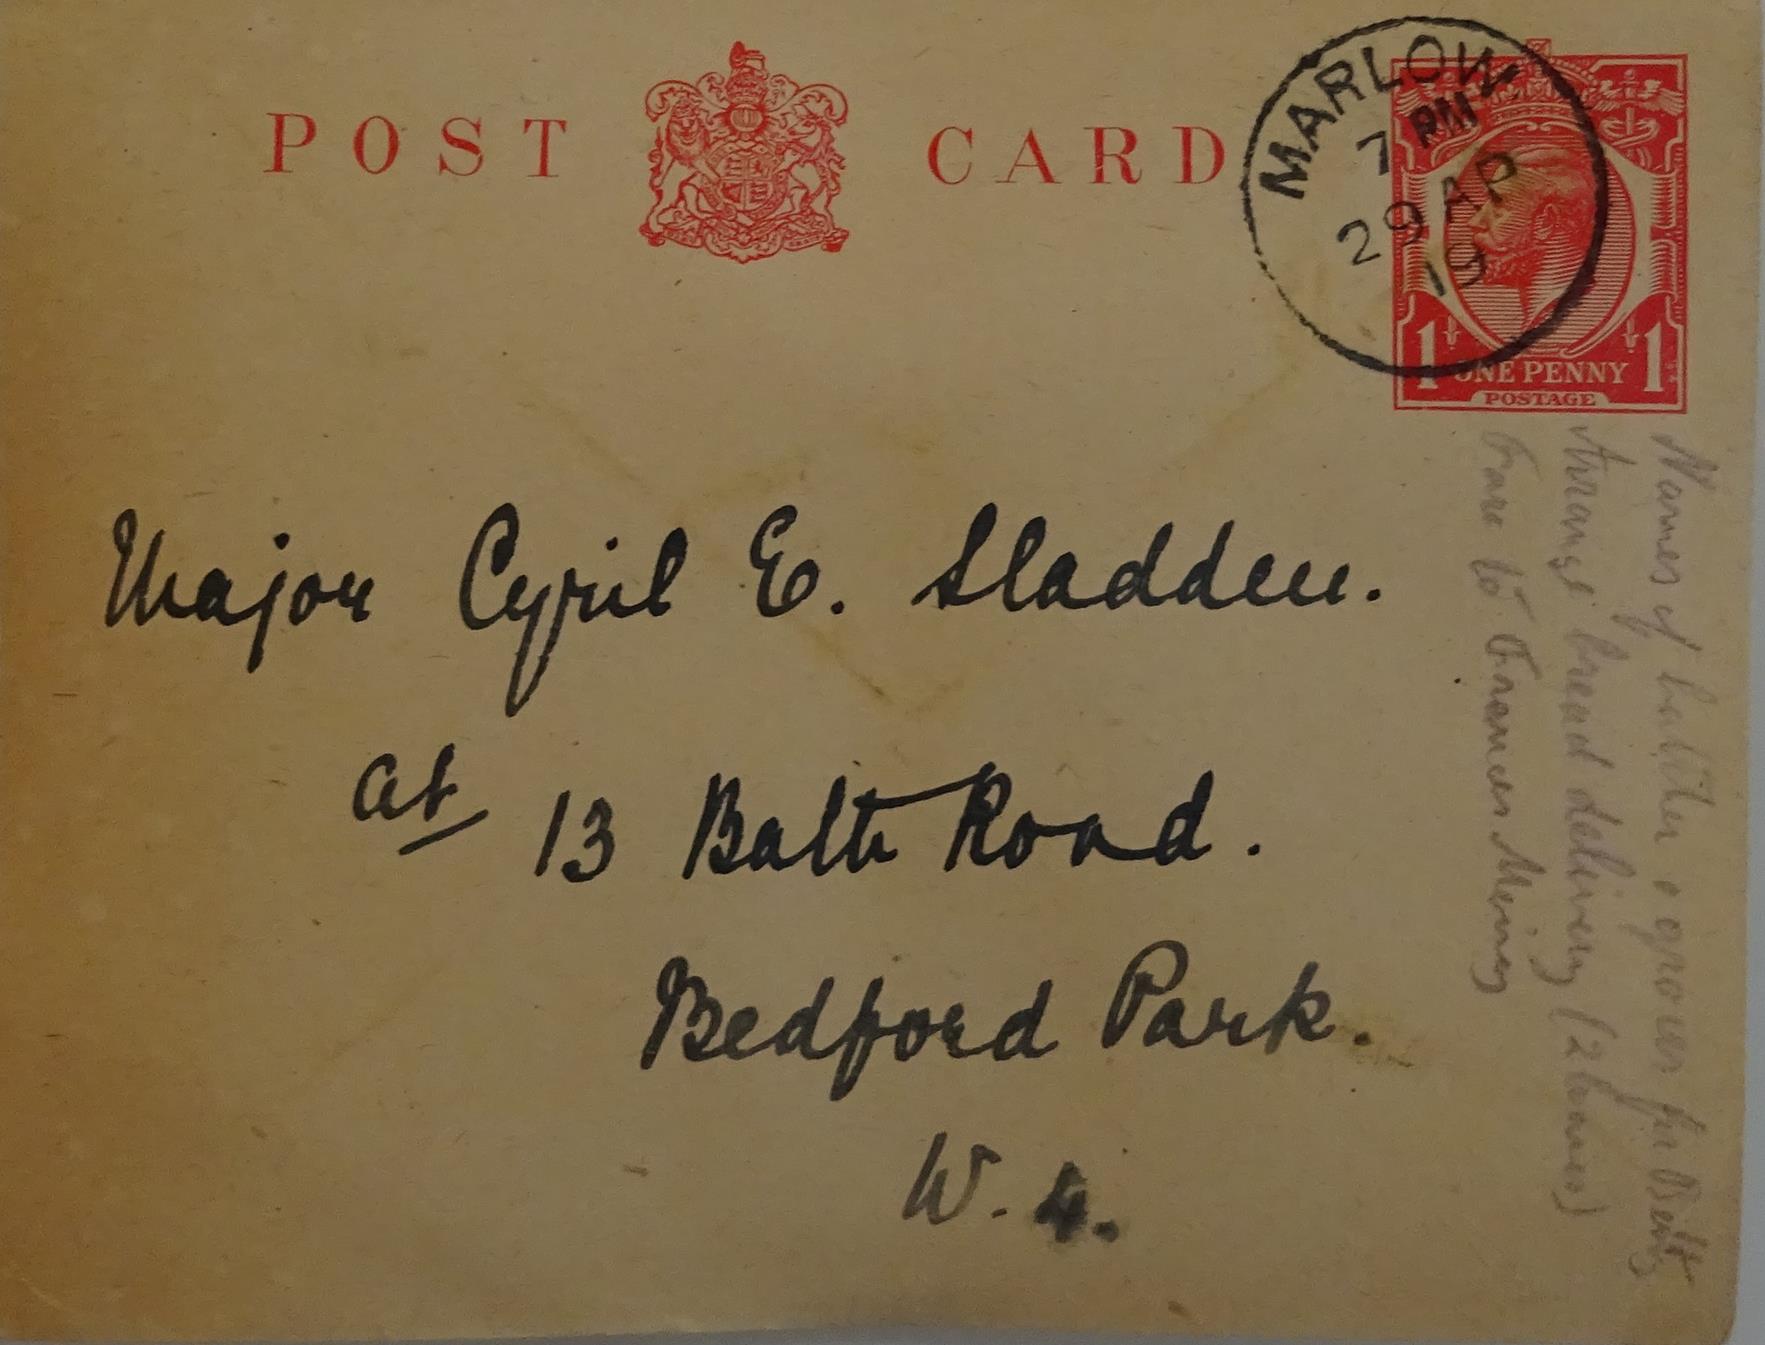 POST CARD
MARLOW
7 PM
29 AP
19
1 ONE PENNY 1
POSTAGE
Major Cyril E. Sladden.
at 13 Bath Road.
Bedford Park.
W. 4.
Names of butcher & grocer for Betty
Arrange bread delivery (2 loaves)
to Frances